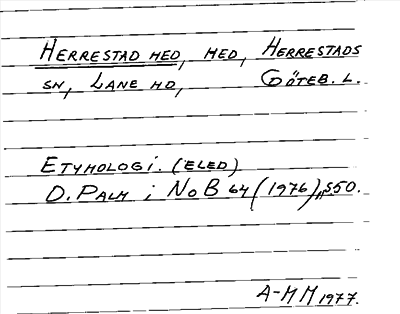 HERRESTAD HED, HED, HERRESTADS
SN, LANE HD, GÖTEB. L.
ETYMOLOGI. (ELED)
D. PALM i NoB 64 (1976), s 50.
A-MM 1977.